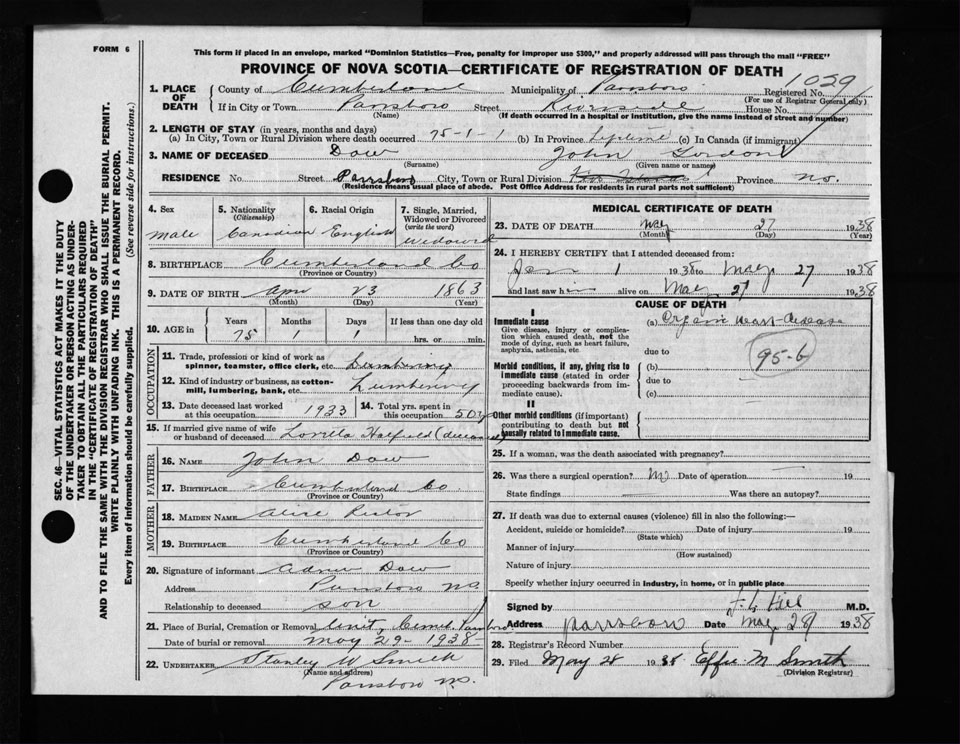 FORM 6
This form if placed in an envelope, marked "Dominion Statistics—Free, penalty for improper use $300," and properly addressed will pass through the mail "FREE"
PROVINCE OF NOVA SCOTIA—CERTIFICATE OF REGISTRATION OF DEATH
SEC. 46—VITAL STATISTICS ACT MAKES IT THE DUTY
OF THE UNDERTAKER OR PERSON ACTING AS UNDER-
TAKER TO OBTAIN ALL THE PARTICULARS REQUIRED
IN THE "CERTIFICATE OF REGISTRATION OF DEATH"
AND TO FILE THE SAME WITH THE DIVISION REGISTRAR WHO SHALL ISSUE THE BURIAL PERMIT.
WRITE PLAINLY WITH UNFADING INK. THIS IS A PERMANENT RECORD.
Every item of Information should be carefully supplied. (See reverse side for instructions.)
1. PLACE OF DEATH County of Cumberland Municipality of Parrsboro Registered No. 1029
(For use of Registrar General only)
If in City or Town Parrsboro Street Riverside House No.
(Name) (If death occurred in a hospital or institution, give the name instead of street and number)
2. LENGTH OF STAY (in years, months and days)
(a) In City, Town or Rural Division where death occurred 75-1-1 (b) In Province Lifetime (c) In Canada (if immigrant)
3. NAME OF DECEASED Dow John Gordon
(Surname) (Given name or names)
RESIDENCE No. Street Parrsboro City, Town or Rural Division Province N.S.
(Residence means usual place of abode. Post Office Address for residents in rural parts not sufficient)
4. Sex
Male
5. Nationality
(Citizenship)
Canadian
6. Racial Origin
English
7. Single, Married,
Widowed or Divorced
(write the word)
Widowed
8. BIRTHPLACE Cumberland Co
(Province or Country)
9. DATE OF BIRTH Apr 23 1863
(Month) (Day) (Year)
10. AGE in Years Months Days If less than one day old
75 1 1 hrs. or min.
OCCUPATION
11. Trade, profession or kind of work as
spinner, teamster, office clerk, etc. Lumbering
12. Kind of industry or business, as cotton-
mill, lumbering, bank, etc. Lumbering
13. Date deceased last worked
at this occupation 1933
14. Total yrs. spent in
this occupation 50 y
15. If married give name of wife
or husband of deceased Loretta Hatfield (deceased)
FATHER
16. NAME John Dow
17. BIRTHPLACE Cumberland Co.
(Province or Country)
MOTHER
18. MAIDEN NAME Alice
19. BIRTHPLACE Cumberland Co
(Province or Country)
20. Signature of informant Dow
Address Parrsboro N.S.
Relationship to deceased son
21. Place of Burial, Cremation or Removal Cemet. Parrsboro
Date of burial or removal May 29- 1938
22. UNDERTAKER Stanley W Smith
(Name and address)
Parrsboro N.S.
MEDICAL CERTIFICATE OF DEATH
23. DATE OF DEATH May 27 1938
(Month) (Day) (Year)
24. I HEREBY CERTIFY that I attended deceased from:
Jan 1 1938 to May 27 1938
and last saw him alive on May 27 1938
CAUSE OF DEATH
I
Immediate cause (a) Organic Heart Disease
Give disease, injury or complica-
tion which caused death, not the
mode of dying, such as heart failure,
asphyxia, asthenia, etc.
due to
95-b
Morbid conditions, if any, giving rise to
immediate cause (stated in order
proceeding backwards from im-
mediate cause).
(b)
due to
(c)
II
Other morbid conditions (if important)
contributing to death but not
causally related to immediate cause.
25. If a woman, was the death associated with pregnancy?
26. Was there a surgical operation? No Date of operation 19
State findings Was there an autopsy?
27. If death was due to external causes (violence) fill in also the following:—
Accident, suicide or homicide? Date of injury 19
(State which)
Manner of injury
(How sustained)
Nature of injury
Specify whether injury occurred in industry, in home, or in public place
Signed by Hill M.D.
Address Parrsboro Date May 28 1938
28. Registrar's Record Number
29. Filed May 28 1938 Effie M Smith
(Division Registrar)